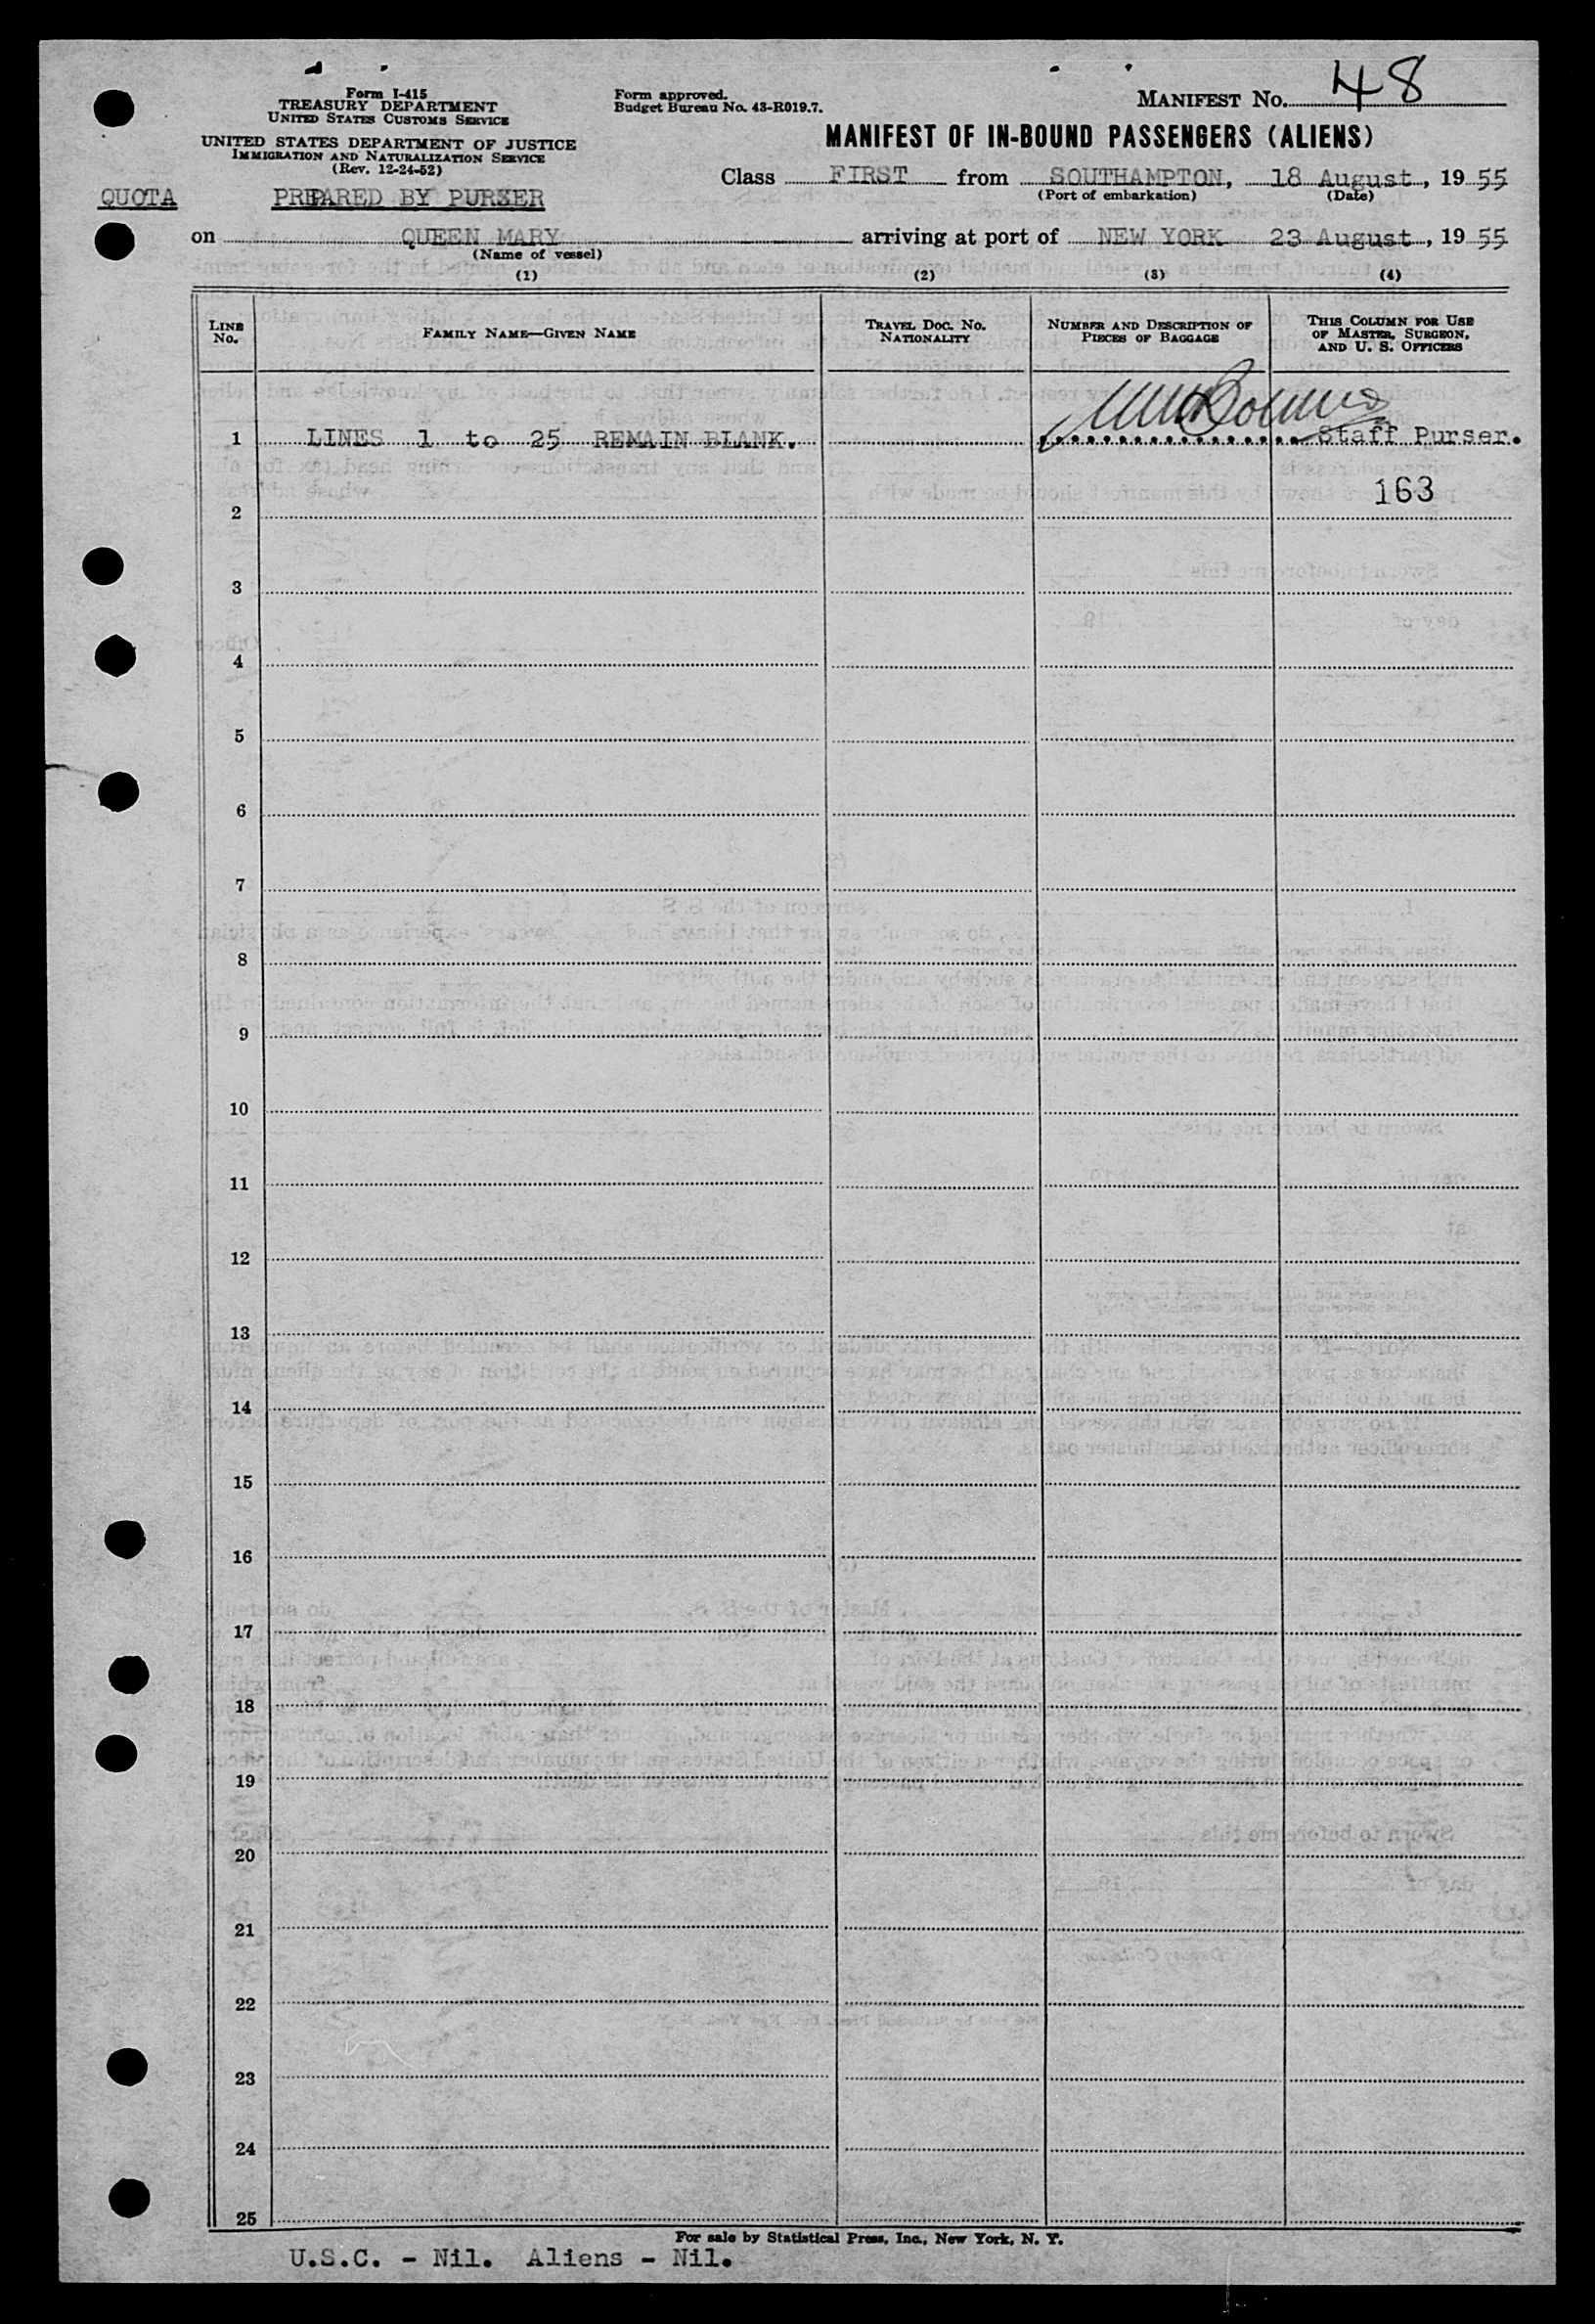 Form I-415
TREASURY DEPARTMENT
UNITED STATES CUSTOMS SERVICE
UNITED STATES DEPARTMENT OF JUSTICE
IMMIGRATION AND NATURALIZATION SERVICE
(Rev. 12-24-52)
Form approved.
Budget Bureau No. 43-R019.7.
MANIFEST NO. 48
MANIFEST OF IN-BOUND PASSENGERS (ALIENS)
Class FIRST from SOUTHAMPTON, 18 August, 1955
(Port of embarkation) (Date)
QUOTA PREPARED BY PURSER
on QUEEN MARY arriving at port of NEW YORK 23 August, 1955
(Name of vessel)
(1) (2) (3) (4)
LINE NO.
FAMILY NAME—GIVEN NAME
TRAVEL DOC. NO.
NATIONALITY
NUMBER AND DESCRIPTION OF
PIECES OF BAGGAGE
THIS COLUMN FOR USE
OF MASTER, SURGEON,
AND U. S. OFFICERS
1 LINES 1 to 25 REMAIN BLANK. Staff Purser.
163
2
3
4
5
6
7
8
9
10
11
12
13
14
15
16
17
18
19
20
21
22
23
24
25
For sale by Statistical Press, Inc., New York, N. Y.
U.S.C. - Nil. Aliens - Nil.